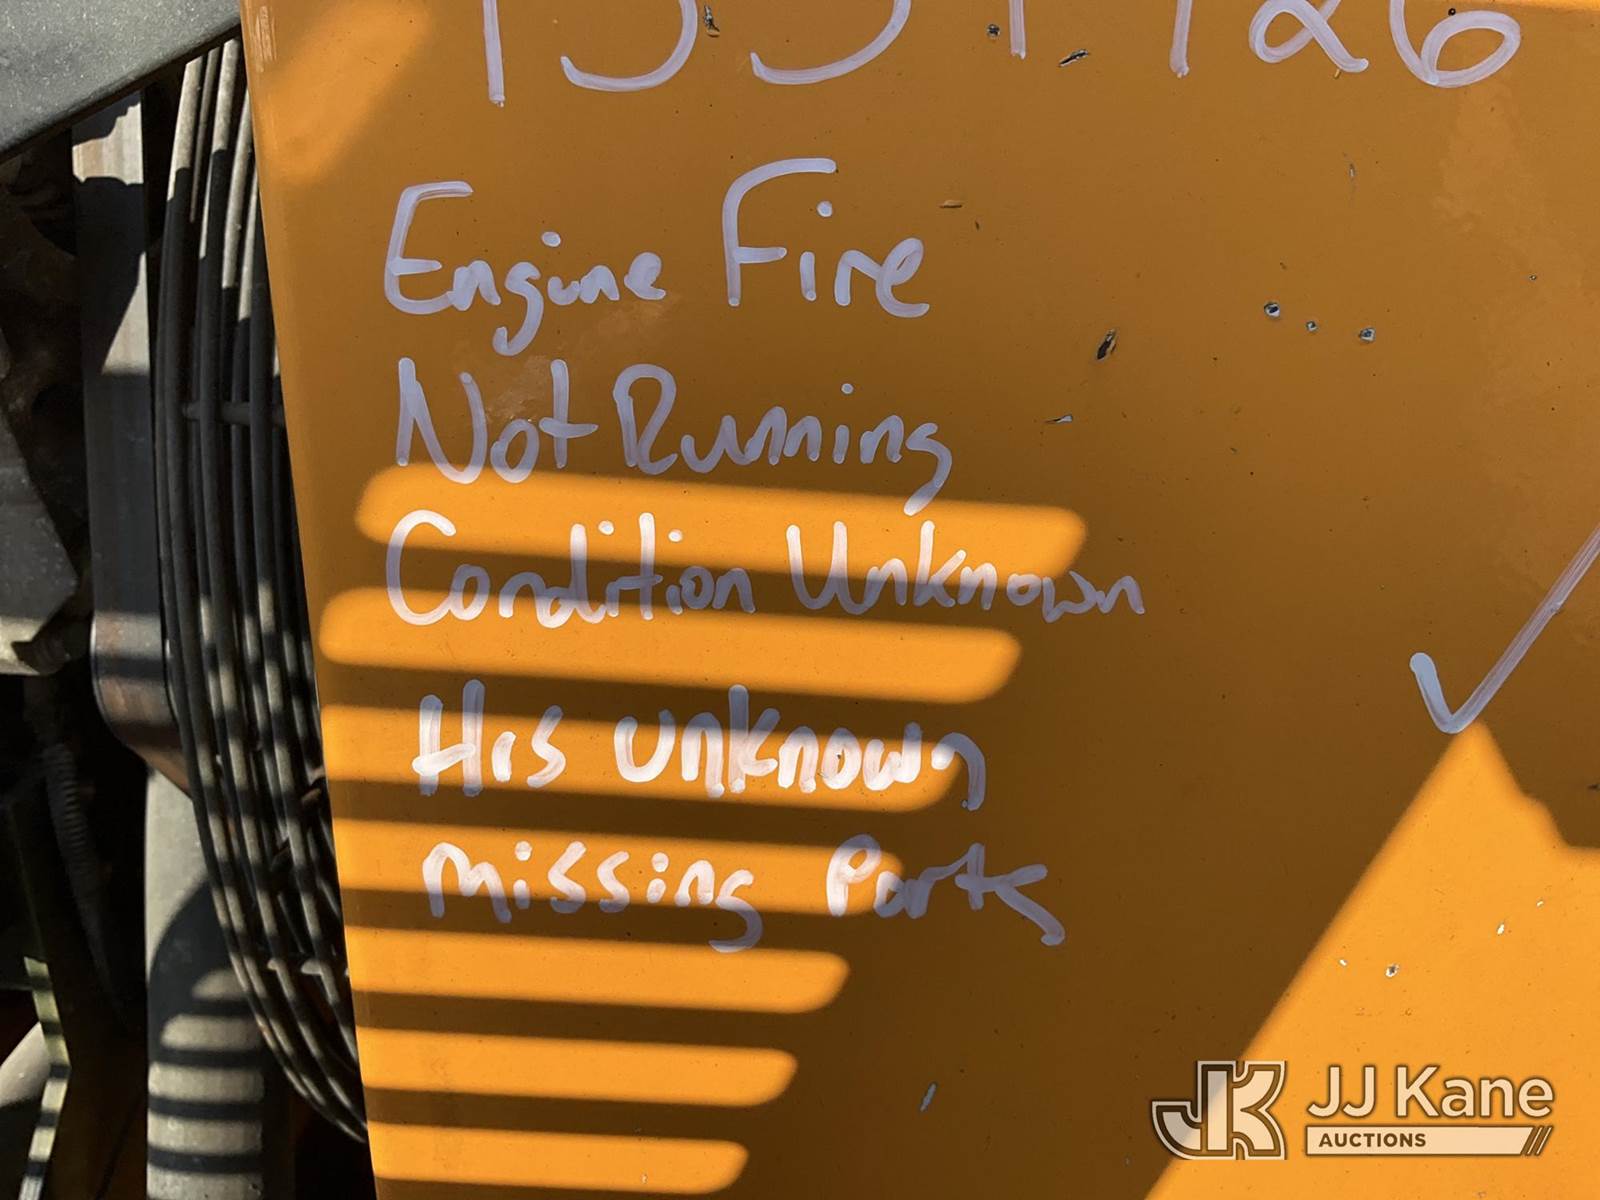 Engine Fire
Not Running
Condition Unknown
Hrs unknown
missing Parts
JJ Kane
AUCTIONS